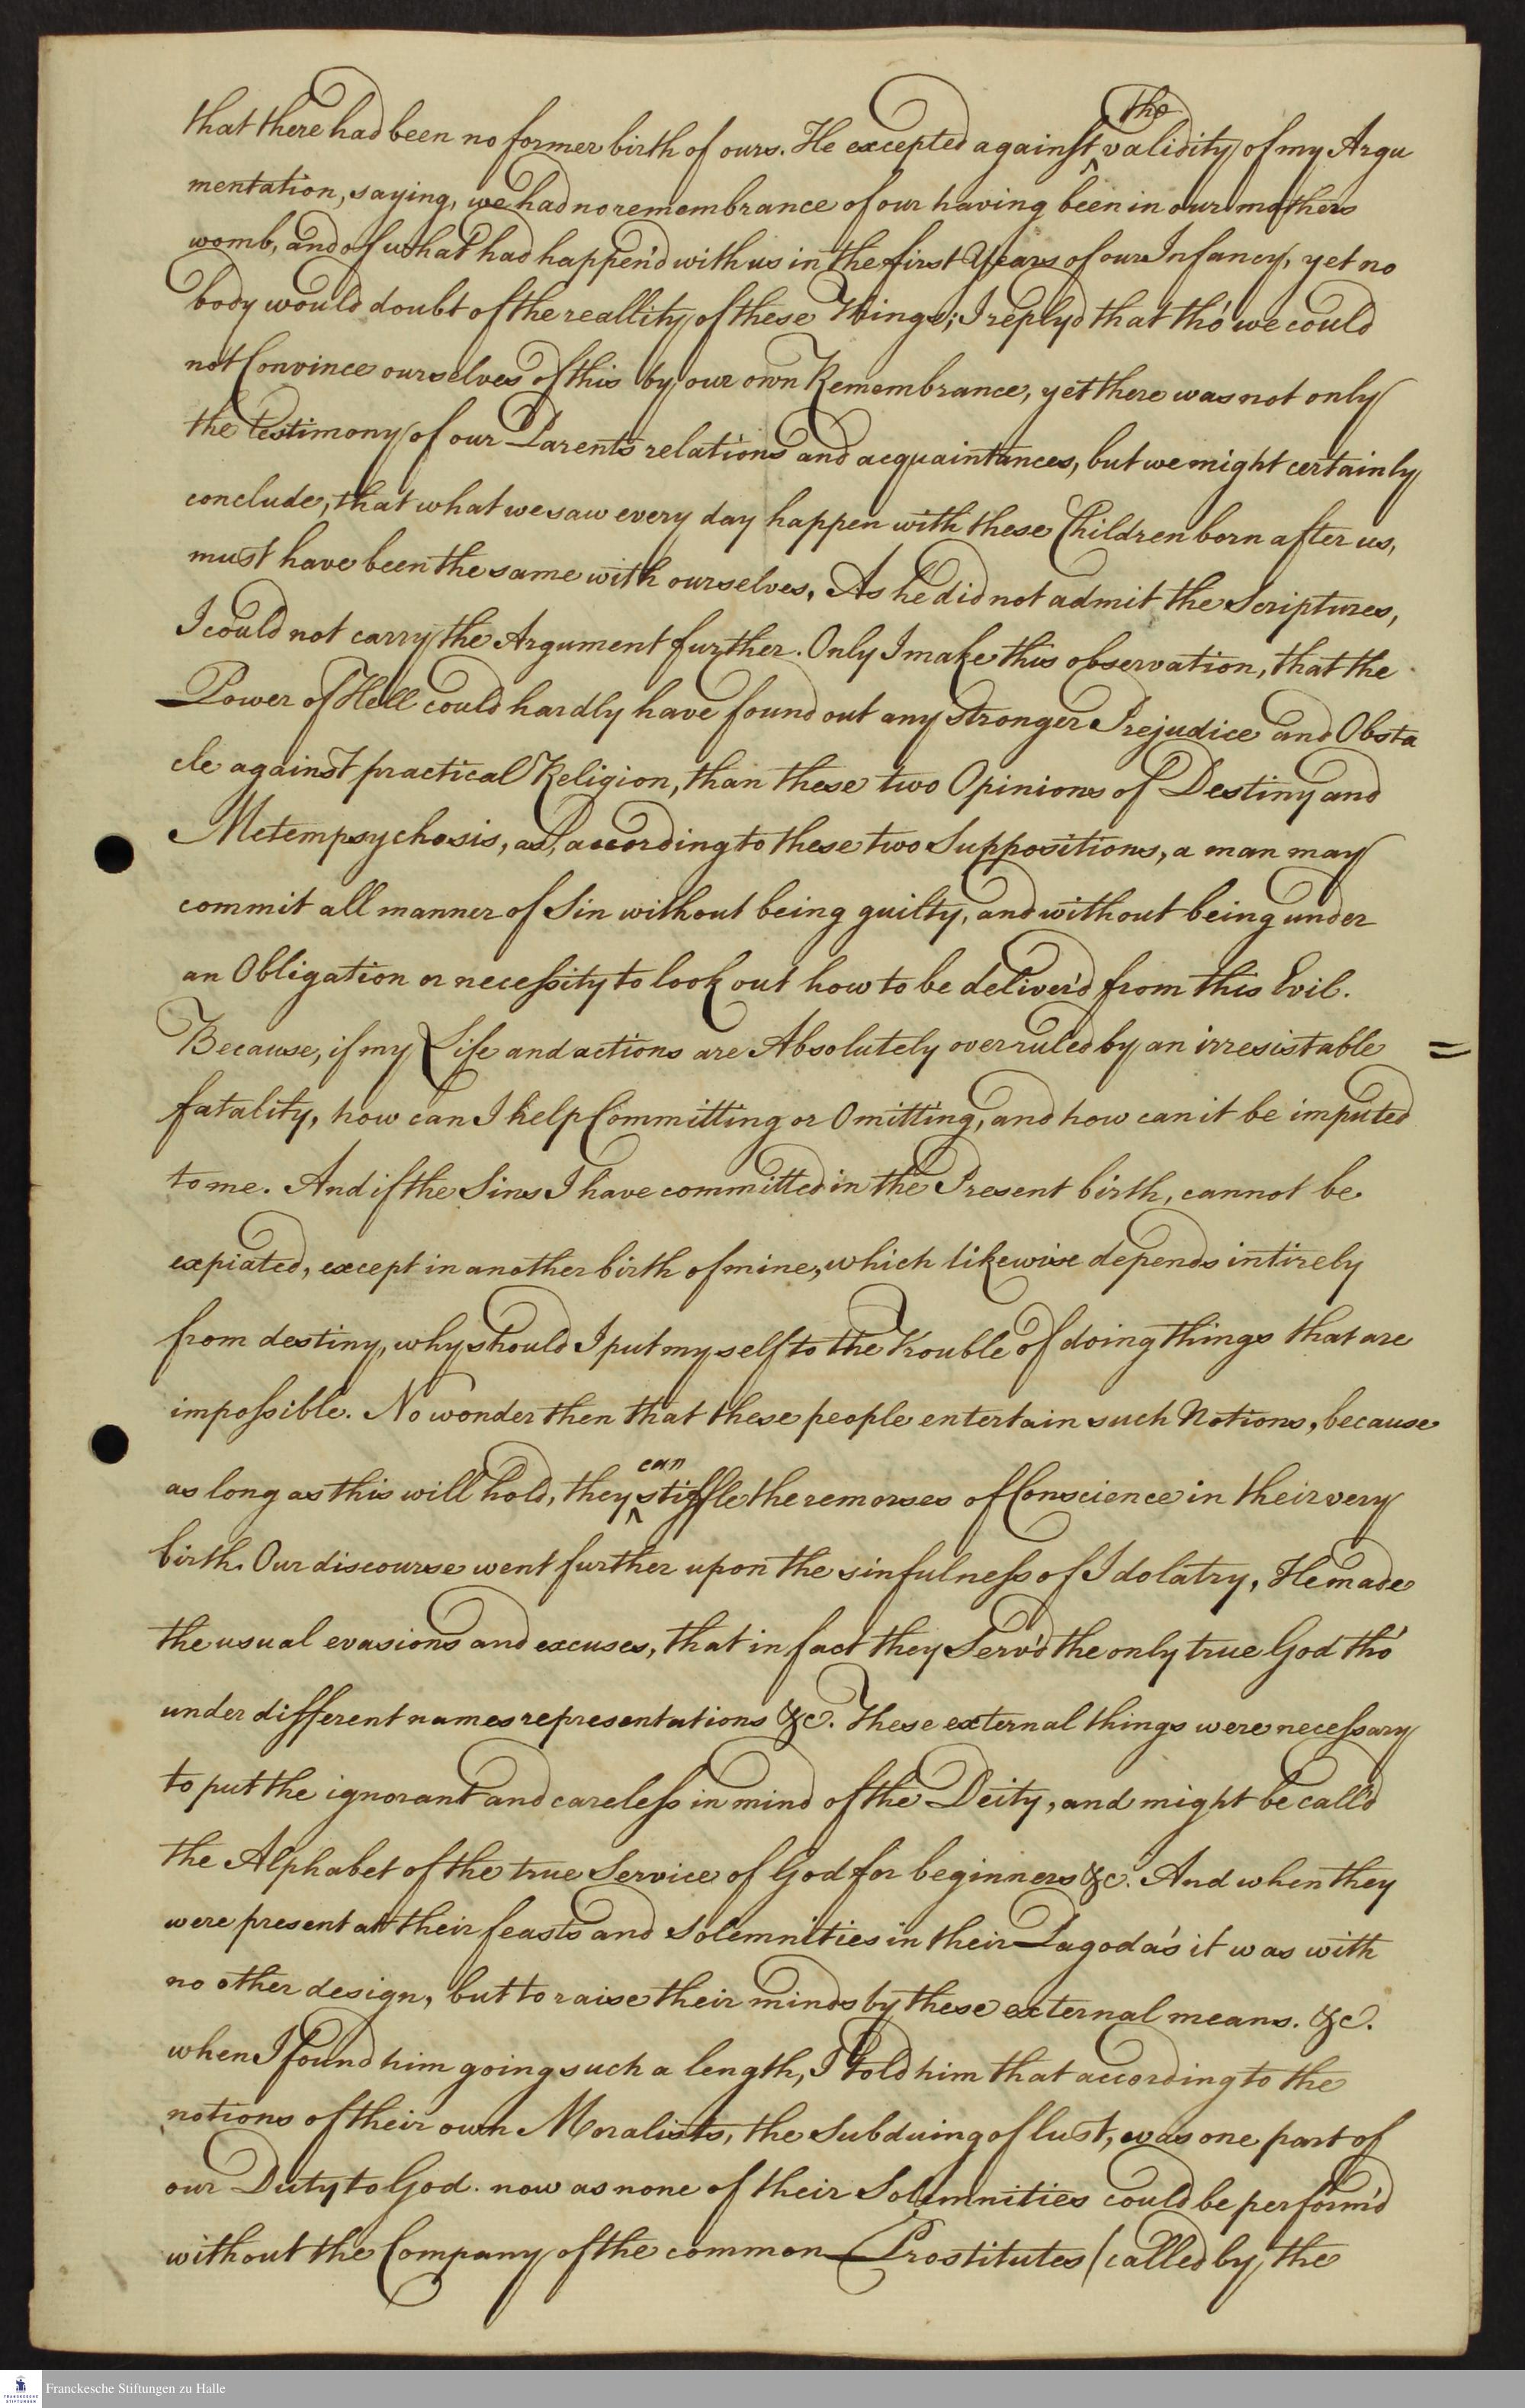 that there had been no former birth of ours. He excepted against the validity of my Argu
mentation, saying, we had no remembrance of our having been in our mothers
womb, and of what had happen'd with us in the first Years of our Infancy, yet no
body would doubt of the reallity of these Things; I reply'd that tho' we could
not Convince ourselves of this by our own Remembrance, yet there was not only
the testimony of our Parents relations and acquaintances, but we might certainly
conclude, that what we saw every day happen with these Children born after us,
must have been the same with ourselves, As he did not admit the Scriptures,
I could not carry the Argument further. Only I make this observation, that the
Power of Hell could hardly have found out any stronger Prejudice and Obsta
cle against practical Religion, than these two Opinions of Destiny and
Metempsychosis, as, according to these two Suppositions, a man may
commit all manner of Sin without being guilty, and without being under
an Obligation or necessity to look out how to be deliver'd from this Evil.
Because, if my Life and actions are Absolutely overruled by an irresistable =
fatality, how can I help Committing or Omitting, and how can it be imputed
to me. And if the Sins I have committed in the Present birth, cannot be
expiated, except in another birth of mine, which likewise depends intirely
from destiny, why should I put myself to the Trouble of doing things that are
impossible. No wonder then that these people entertain such Notions, because
as long as this will hold, they can stiffle the remorses of Conscience in their very
birth. Our discourse went further upon the sinfulness of Idolatry, He made
the usual evasions and excuses, that in fact they Serv'd the only true God tho'
under different names representations &c. These external things were necessary
to put the ignorant and careless in mind of the Deity, and might be call'd
the Alphabet of the true Service of God for beginners &c. And when they
were present att their feasts and Solemnities in their Pagoda's it was with
no other design, but to raise their minds by these external means. &c.
when I found him going such a length, I told him that according to the
notions of their own Moralists, the Subduing of lust, was one part of
our Duty to God. now as none of their Solemnities could be perform'd
without the Company of the common Prostitutes (called by the
Franckesche Stiftungen zu Halle